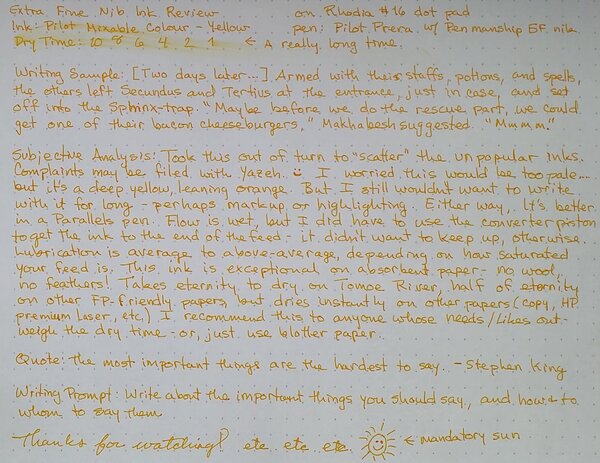 Extra Fine Nib Ink Review on: Rhodia #16 dot pad
Ink: Pilot Mixable Colour - Yellow pen: Pilot Prera w/ Penmanship EF nib
Dry Time: 10 8 6 4 2 1 ← A really long time.
Writing Sample: [Two days later...] Armed with their staffs, potions, and spells,
the others left Secundus and Tertius at the entrance, just in case, and set
off into the Sphinx-trap. "Maybe before we do the rescue part, we could
get one of their bacon cheeseburgers," Makhabesh suggested. "Mmmm."
Subjective Analysis: Took this out of turn to "scatter" the unpopular inks.
Complaints may be filed with Yazeh. I worried this would be too pale...
but it's a deep yellow, leaning orange. But I still wouldn't want to write
with it for long - perhaps markup or highlighting. Either way, it's better
in a Parallels pen. Flow is wet, but I did have to use the converter piston
to get the ink to the end of the feed - it didn't want to keep up, otherwise.
Lubrication is average to above-average, depending on how saturated
your feed is. This ink is exceptional on absorbent paper - no wool,
no feathers! Takes eternity to dry on Tomoe River, half of eternity
on other FP-friendly papers, but dries instantly on other papers (copy, HP
premium laser, etc.) I recommend this to anyone whose needs/likes out-
weigh the dry time - or, just use blotter paper.
Quote: The most important things are the hardest to say. - Stephen King
Writing Prompt: Write about the important things you should say, and how & to
whom to say them
Thanks for watching! etc. etc. etc. ← mandatory sun